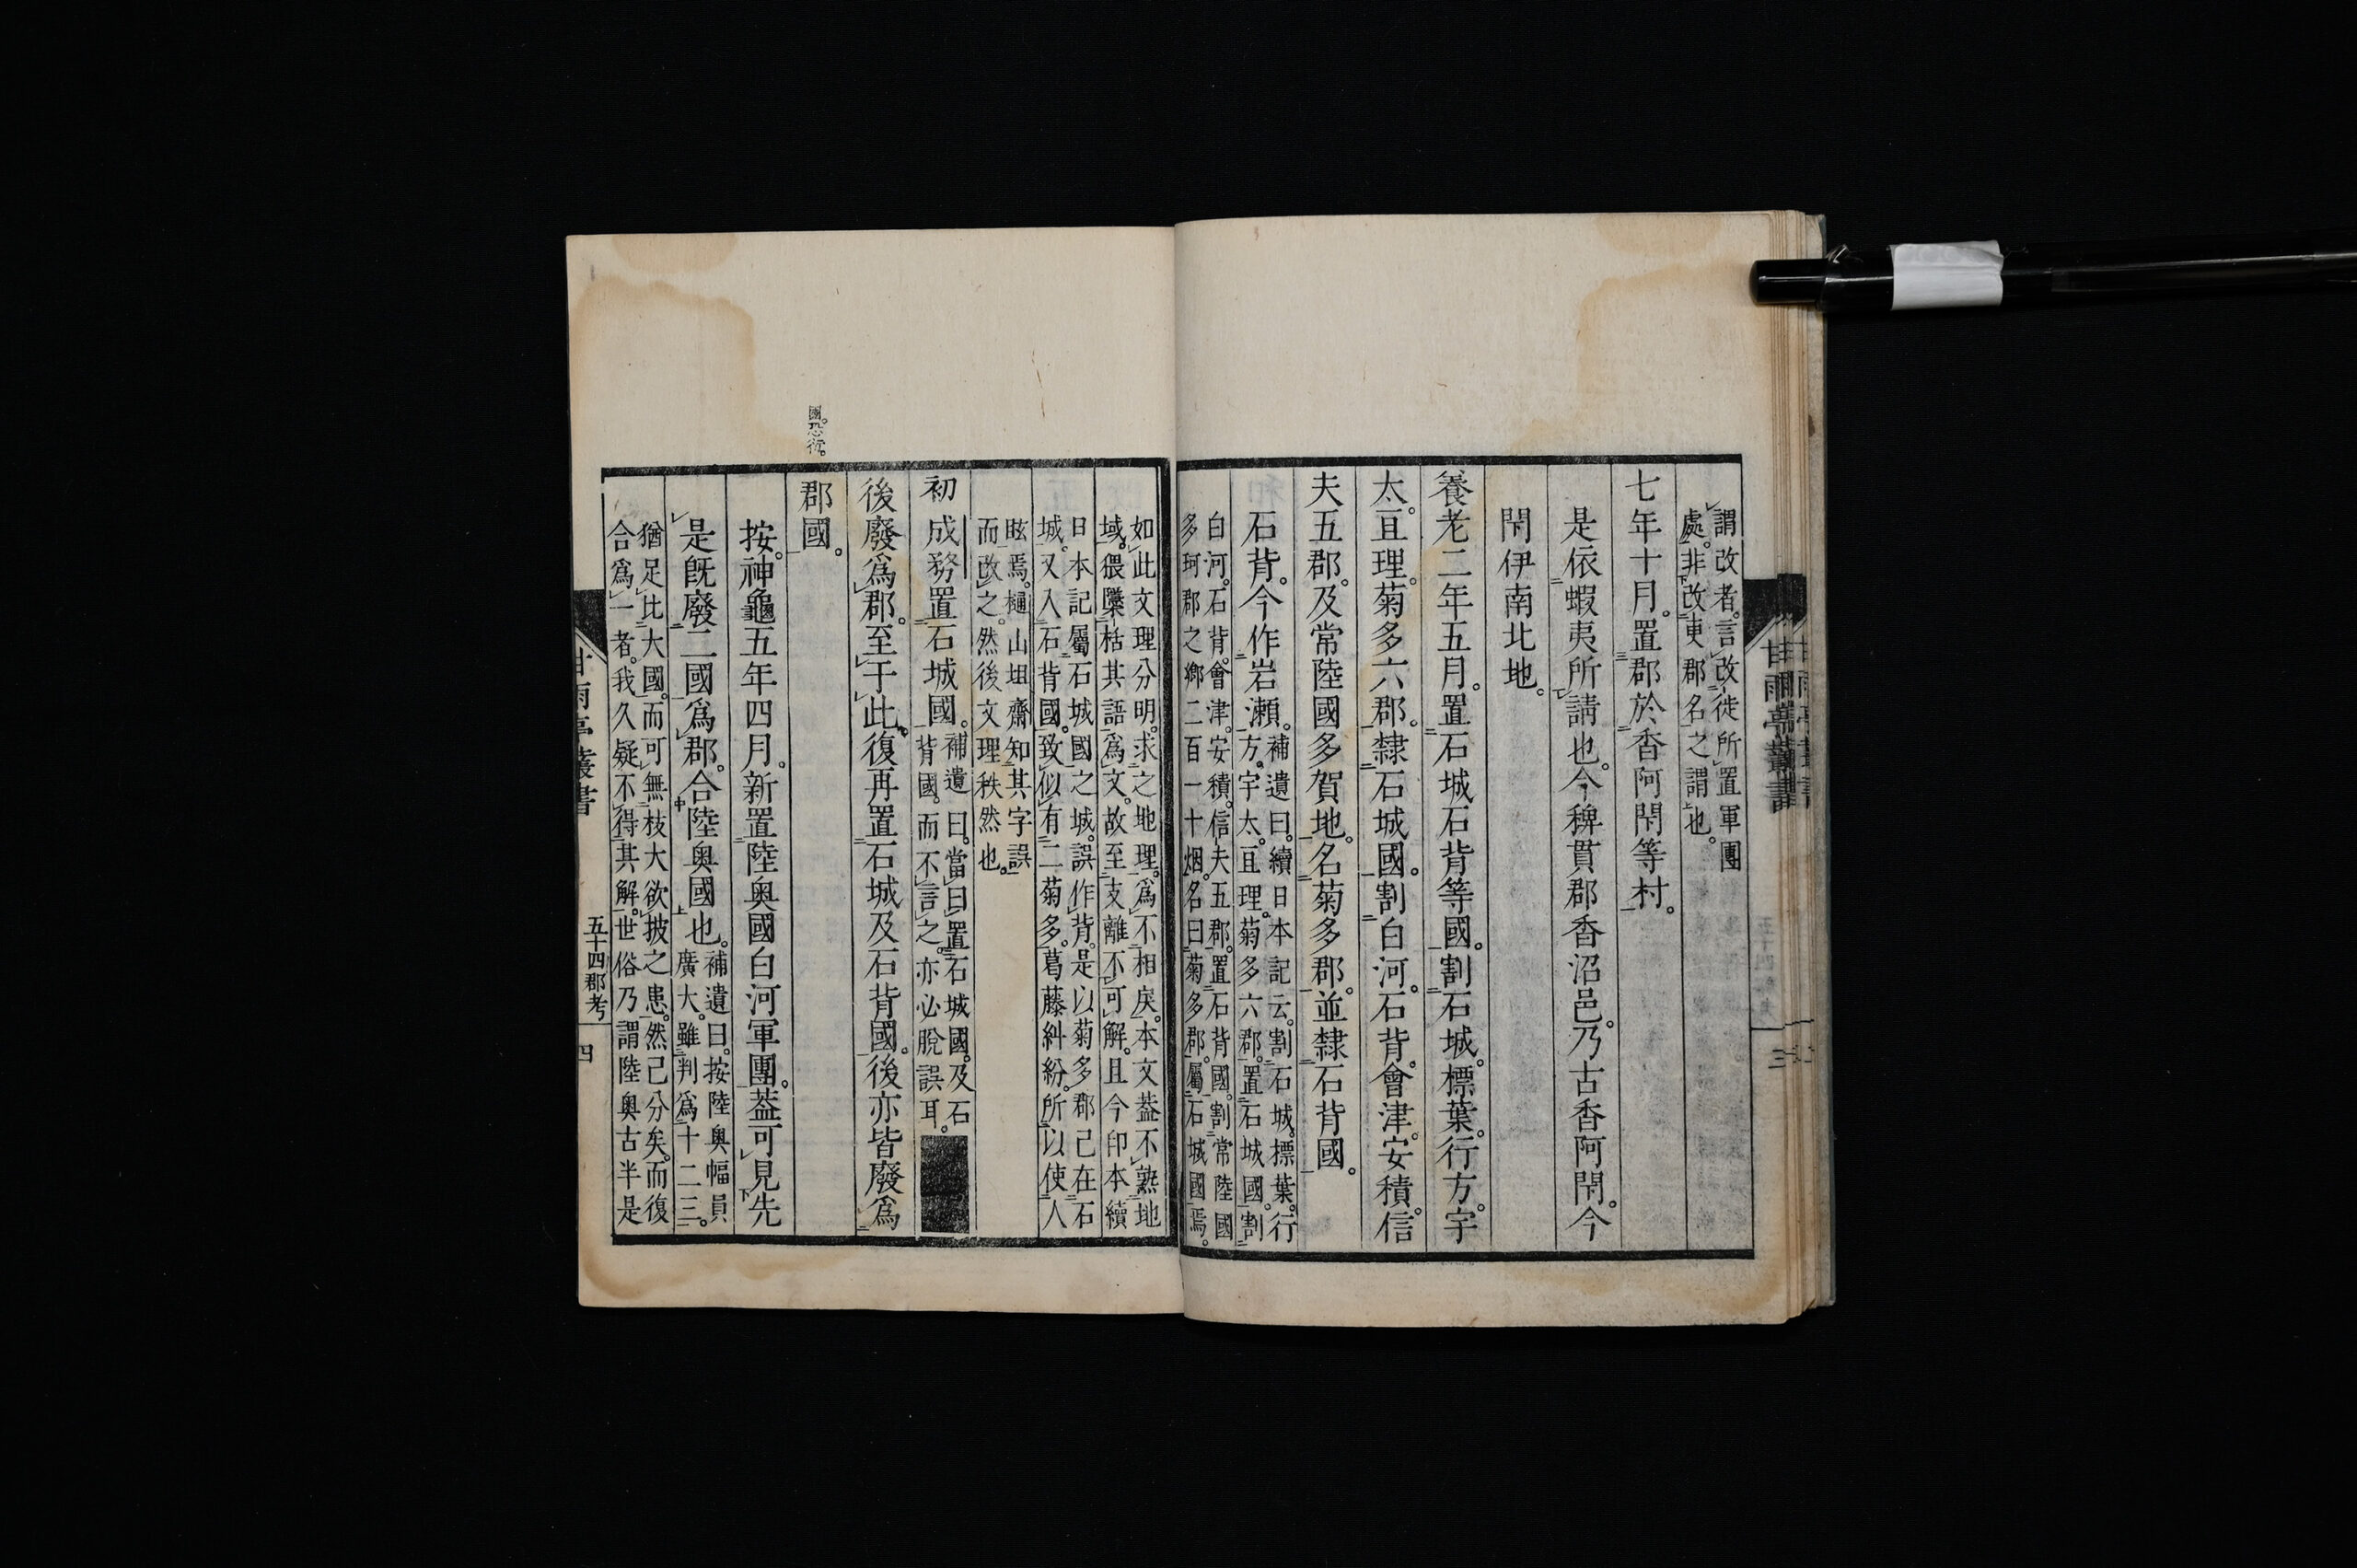 謂改者。言改徒所置軍團
處。非改更郡名之謂也。
七年十月。置郡於香阿閇等村。
是依蝦夷所請也。今稗貫郡香沼邑。乃古香阿閇。今
閇伊南北地。
養老二年五月。置石城石背等國。割石城。標葉。行方。宇
太。亘理。菊多六郡。隸石城國。割白河。石背。會津。安積。信
夫五郡。及常陸國多賀地。名菊多郡。並隸石背國。
石背。今作岩瀨。補遺曰。續日本記云。割石城。標葉。行
方。宇太。亘理。菊多六郡。置石城國。割
白河。石背。會津。安積。信夫五郡。置石背國。割常陸國
多珂郡之鄉二百一十烟。名曰菊多郡。屬石城國焉。
如此文理分明。求之地理。爲不相戾。本文葢不熟地
域。猥檃栝其語爲文。故至支離不可解。且今印本續
日本記屬石城國之城。誤作背。是以菊多郡已在石
城。又入石背國。致似有二菊多。葛藤糾紛。所以使人
眩焉。樋山蛆齋知其字誤
而改之。然後文理秩然也。
初成務置石城國。補遺曰。當曰置石城國。及石
背國。而不言之。亦必脫誤耳。
後廢爲郡。至于此復再置石城及石背國。後亦皆廢爲
郡國。
國。恐衍。
按。神龜五年四月。新置陸奥國白河軍團。葢可見先
是既廢二國爲郡。合陸奥國也。補遺曰。按陸奥幅員
廣大。雖判爲十二三。
猶足比大國。而可無枝大欲披之患。然已分矣。而復
合爲一者。我久疑不得其解。世俗乃謂陸奥古半是
甘雨亭叢書
五十四郡考
四
甘雨亭叢書
三